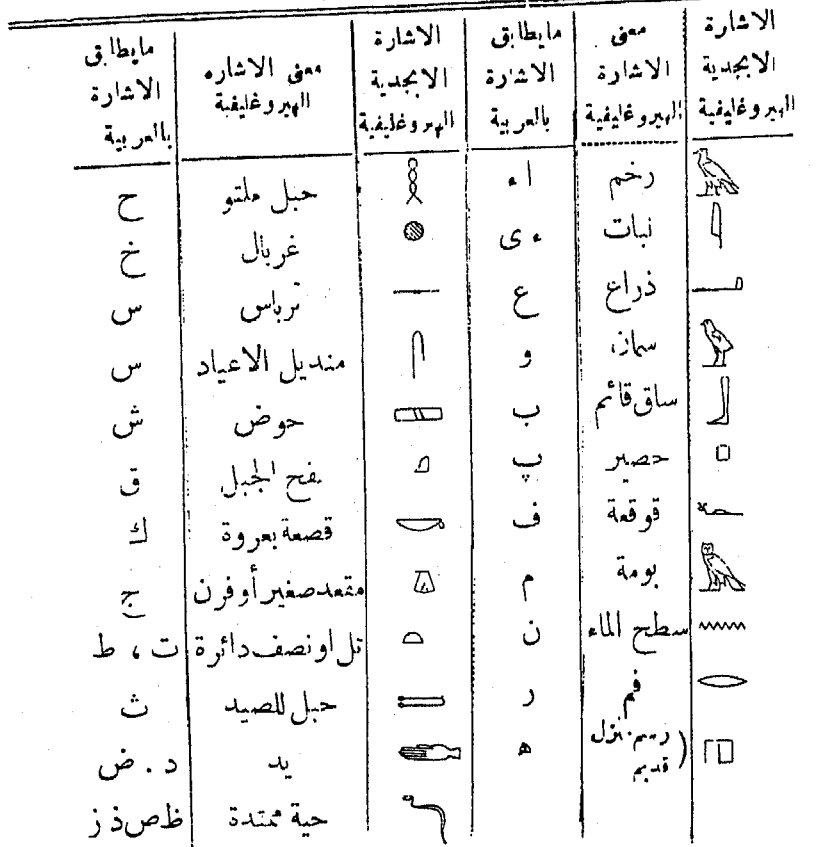 الاشارة الابجدية الهيروغليفية | معنى الاشارة الهيروغليفية | مايطابق الاشارة بالعربية | الاشارة الابجدية الهيروغليفية | معنى الاشاره الهيروغليفية | مايطابق الاشارة بالعربية
رخم | ا ء | حبل ملتو | ح
نبات | ء ى | غربال | خ
ذراع | ع | ترباس | س
و | منديل الاعياد | س
ساق قائم | ب | حوض | ش
حصير | پ | الجبل | ق
قوقعة | ف | قصعة بعروة | ك
بومة | م | مقعد صغير أو فرن | ج
سطح الماء | ن | تل او نصف دائرة | ت ، ط
فم | ر | حبل للصيد | ث
قديم | ه | يد | د . ض
حية ممتدة | ظ ص ذ ز